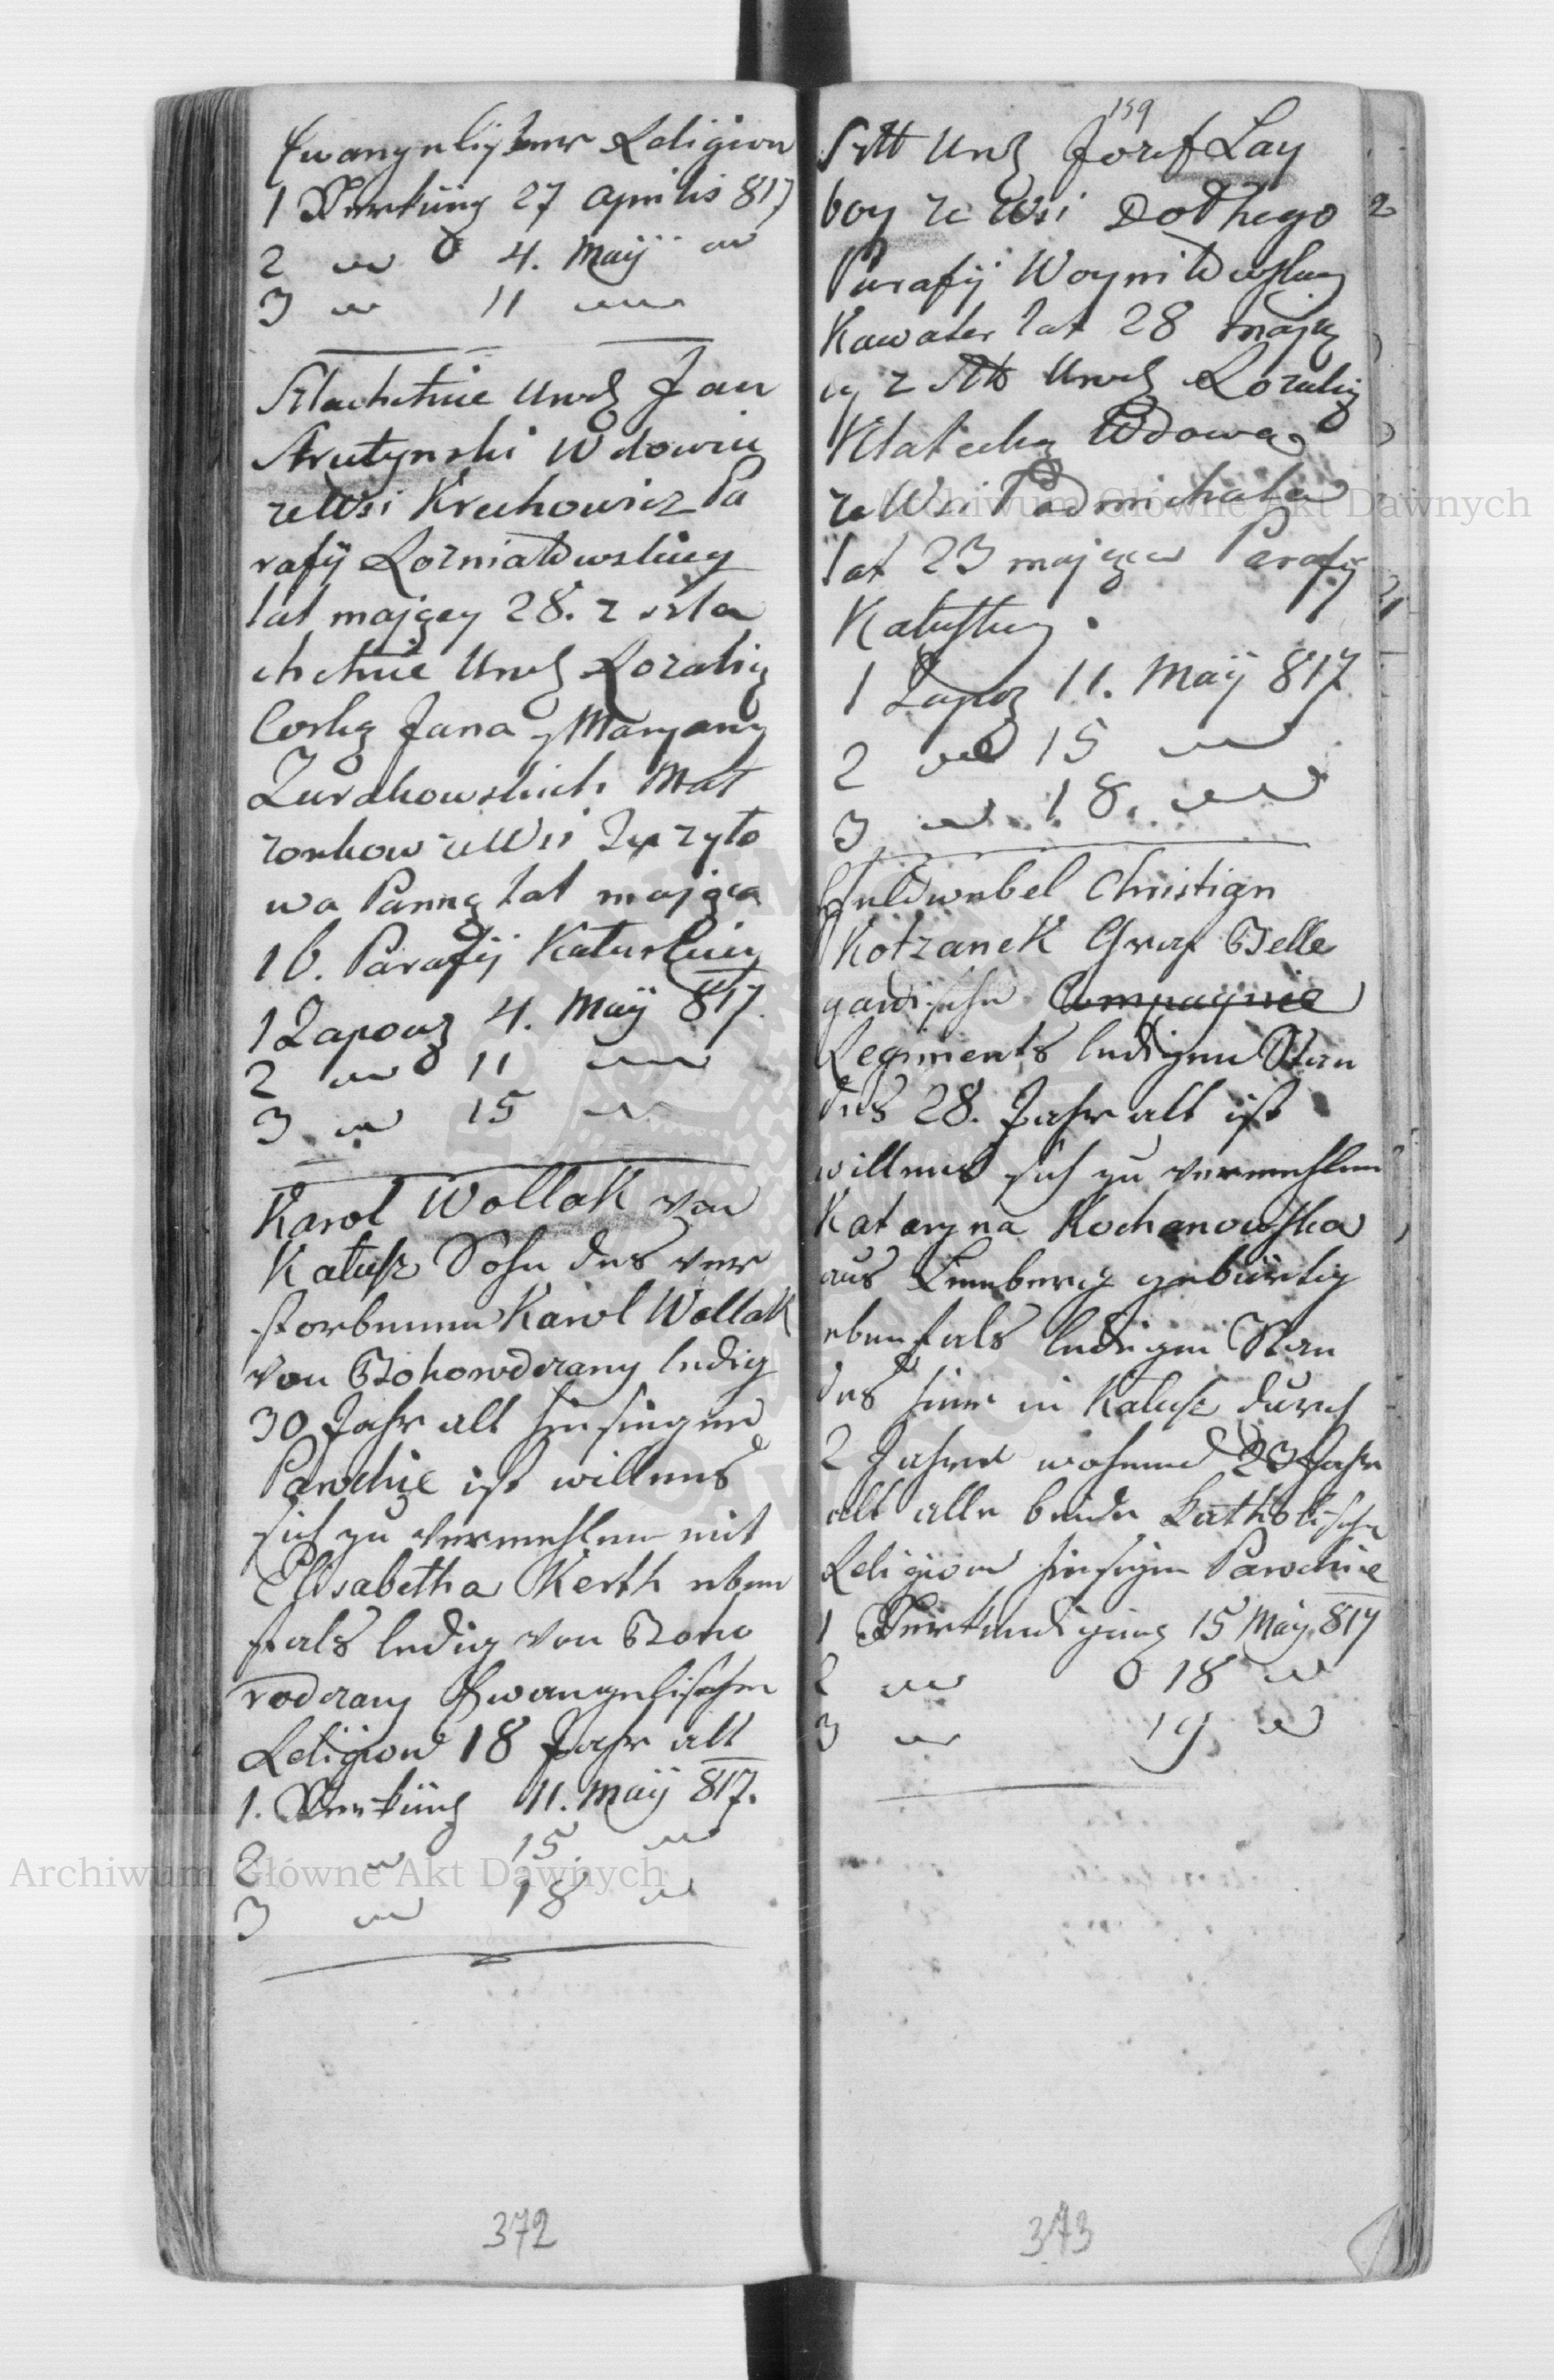 Ewangelischer Religion
1 Verkünd 27 Aprilis 817
2 4. Maÿ
3 11
Szlachetnie Urodz Jan
Strutynski Wdowiec
ze Wsi Krechowicz Pa
rafÿ Rozniatowskiey
lat maiący 28. z szla
chetnie Urodz Rozalią
Corką Jana y Maryany
Zurakowskich Mał
zonkow ze Wsi
wa Panną lat maiąca
16. Parafÿ Kałuskiey
1 Zapowz 4. Maÿ 817.
2 11
3 15
Karol Wollak von
Kałusz Sohn des ver
storbenen Karol Wollak
von Bohorodczany ledig
30 Jahr alt hiesiegen
Parochie ist willens
sich zu vermehlen mit
Elisabetha Kerth eben
fals ledig von Boho
rodczany Ewangelischer
Religion 18 Jahr alt
1. Verkünd 11. Maÿ 817.
2 15
3 18
372
159
Szlt Urodz Jozef Lay
boy ze Wsi Dołhego
Parafÿ Woyniłowskiey
Kawaler lat 28 maią
cy z Szlt Urodz Rozalią
Wdowa
ze Wsi Podmichala
lat 23 maiąca Parafÿ
Kałuskiey.
1 Zapoz 11. Maÿ 817
2 15
3 18.
Feldwebel Christian
Kotzanek Graf Belle
gardischen Compagnie
Regiments ledigen Stan
des 28. Jahr alt ist
willens sich zu vermehlen
Kataryna Kochanowska
aus Lemberg gebürtig
ebenfals ledigen Stan
des hier in Kalusz durch
2 Jahre wohnend 23 Jahr
alt alle beide Katholischer
Religion hiesigen Parochie
1 Verkundigung 15 Maÿ 817
2 18
3 19
373
Archiwum Główne Akt Dawnych
Archiwum Główne Akt Dawnych